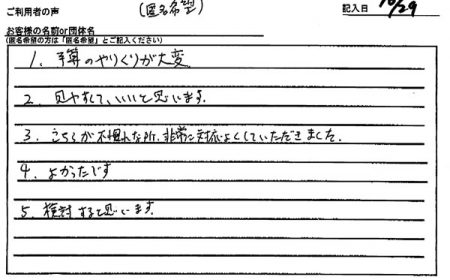 ご利用者の声
(匿名希望)
記入日 10/29
お客様の名前or団体名
(匿名希望の方は「匿名希望」とご記入ください)
1. 予算のやりくりが大変
2. 見やすくて、いいと思います。
3. こちらが不慣れな所、非常に対応よくしていただきました。
4. よかったです
5. 検討すると思います。